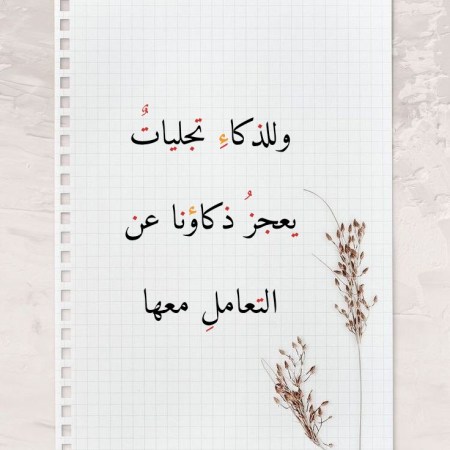 وللذكاءِ تجلياتٌ
يعجزُ ذكاؤنا عن
التعاملِ معها